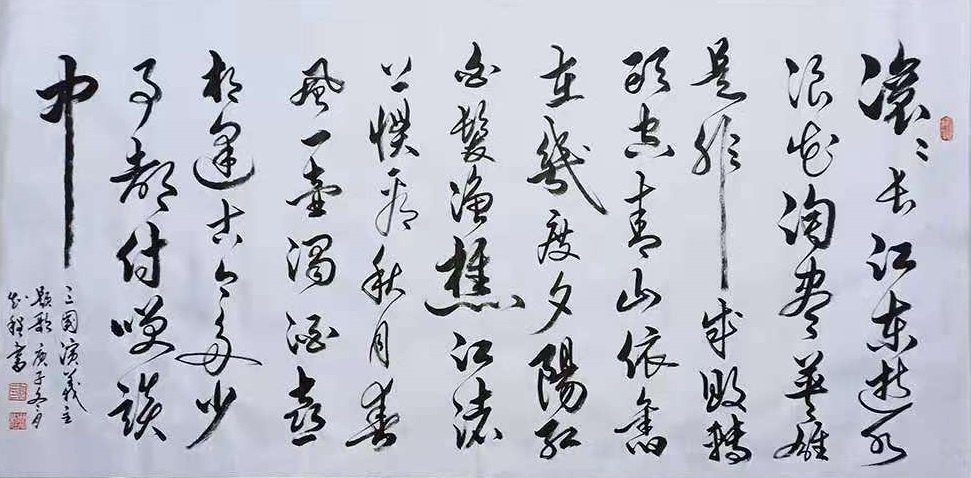 滚〻长江东逝水
浪花淘尽英雄
是非成败轉
头空青山依舊
在幾度夕陽红
白髮渔樵江渚
上惯看秋月春
風一壶濁酒喜
相逢古今多少
事都付笑谈
中
三国演義主
题歌庚子冬月
书